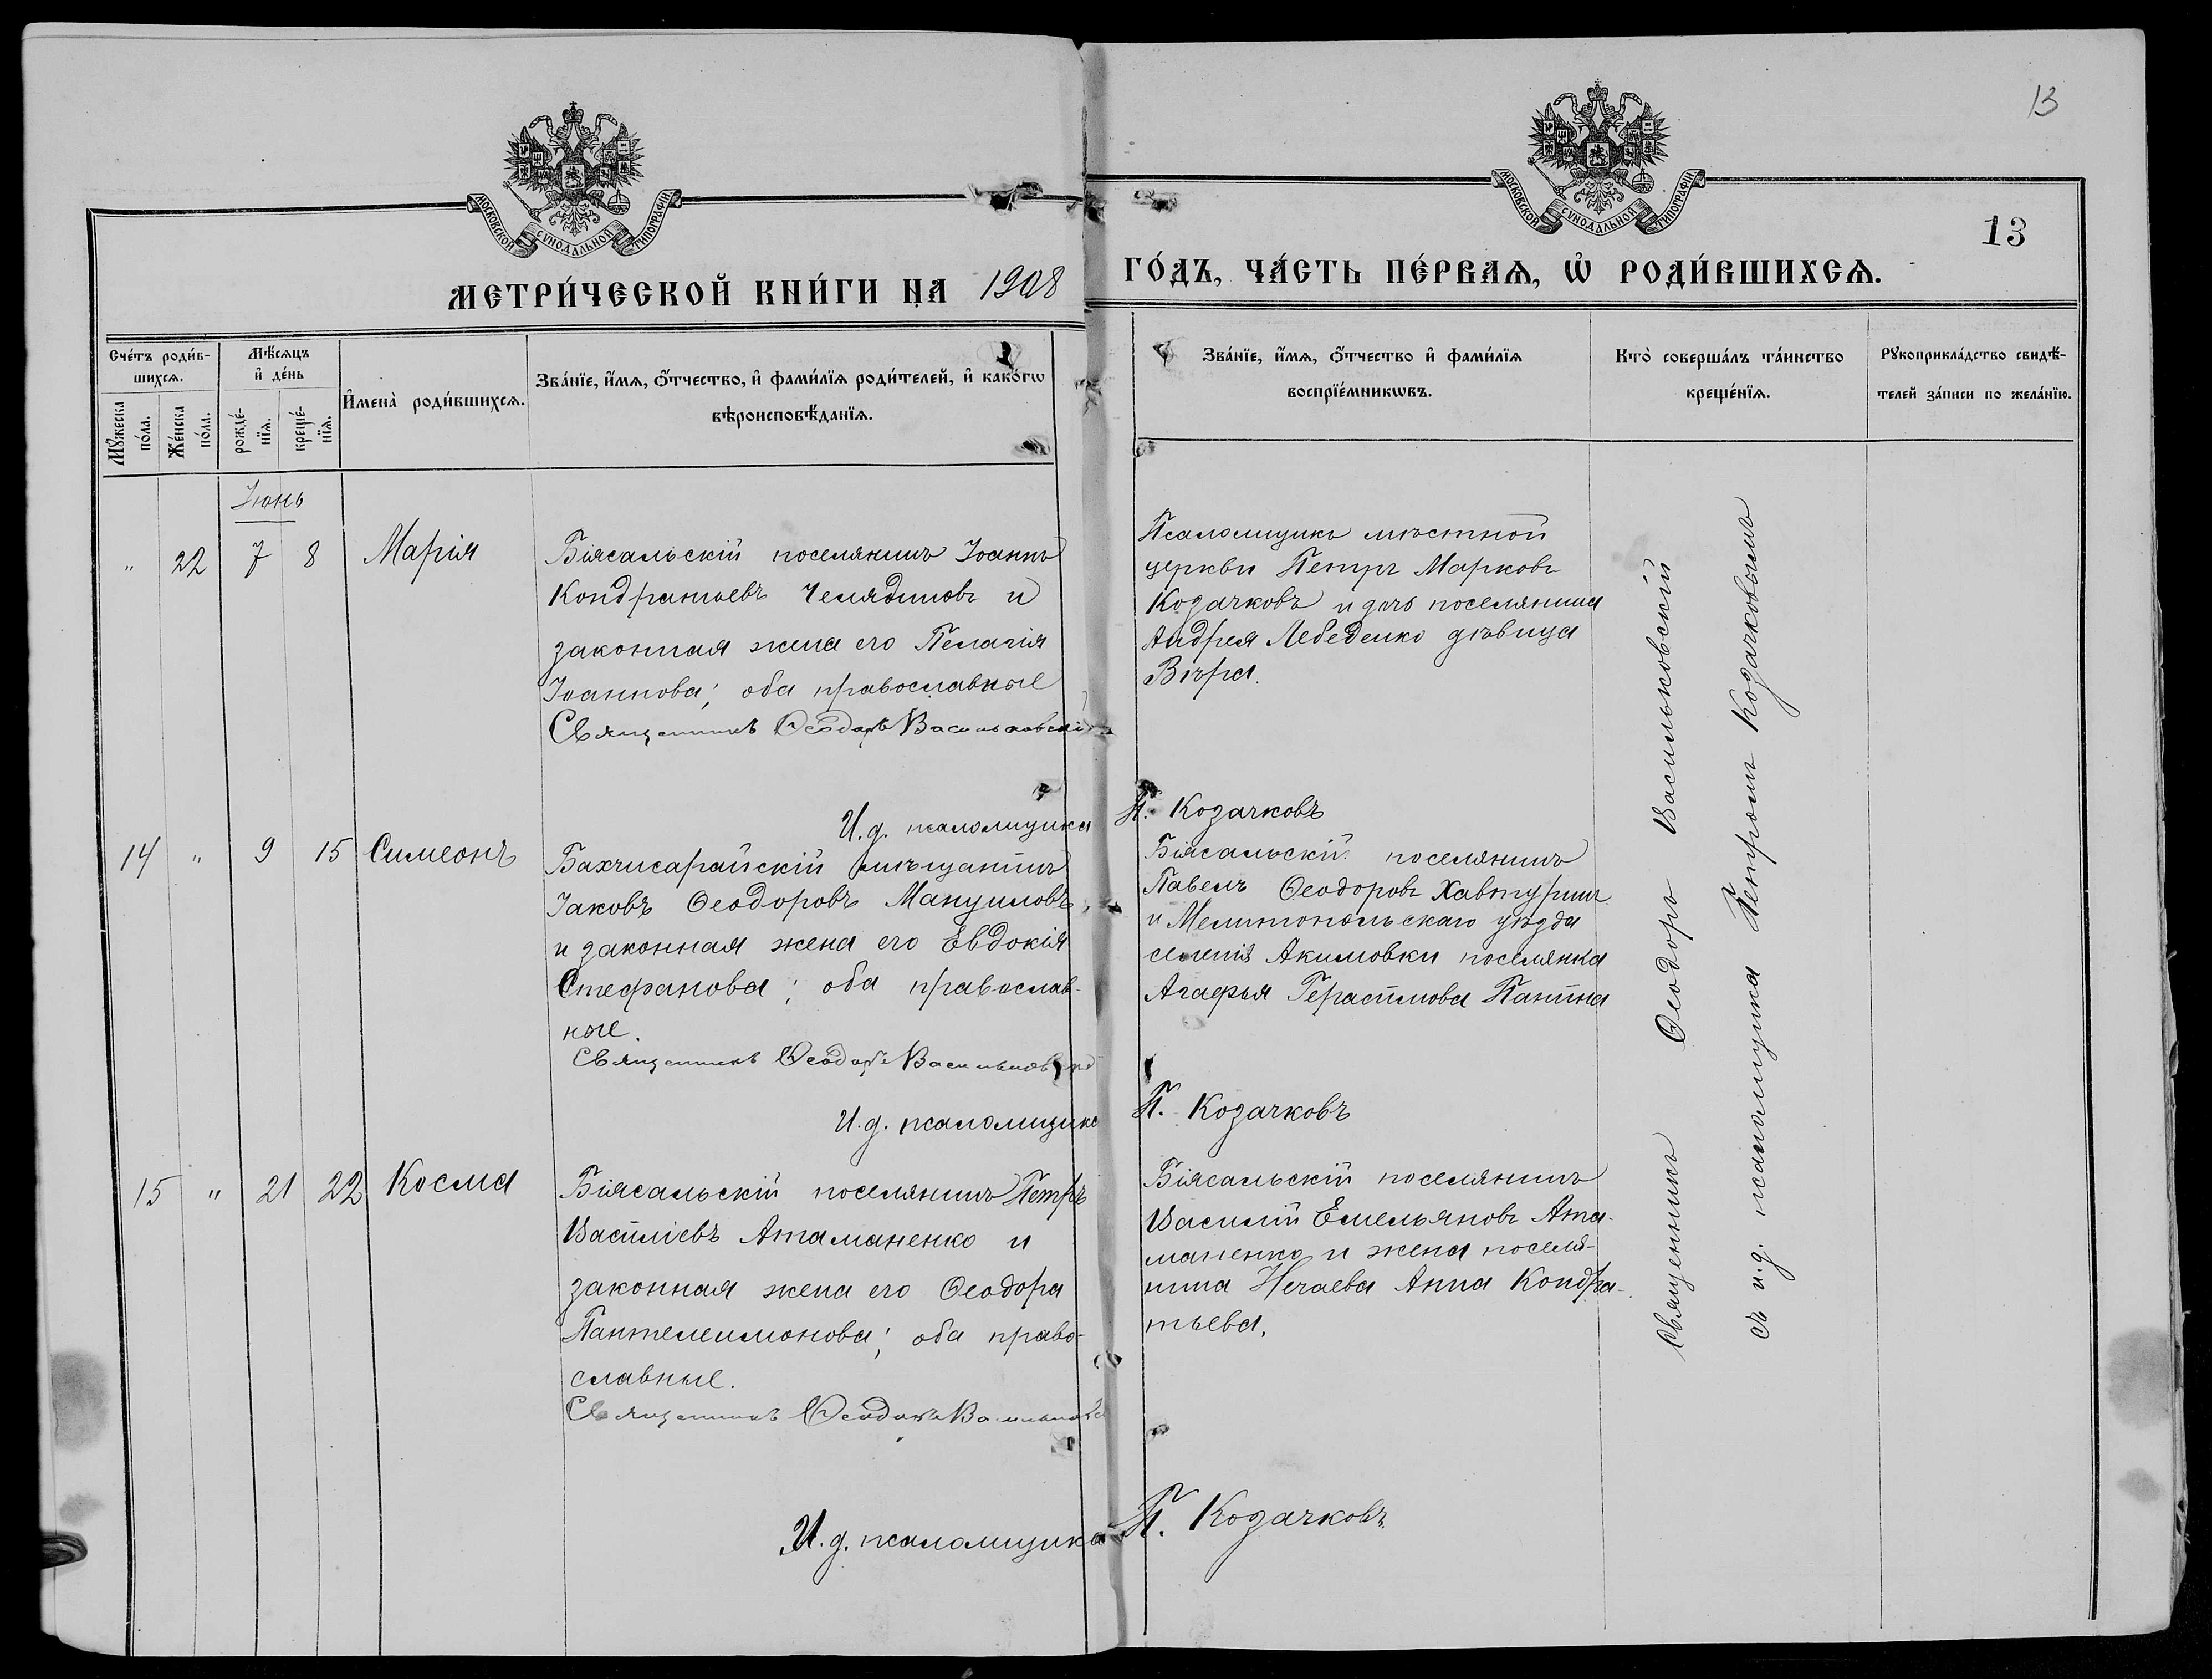 13
МОСКОВСКОЙ СУНОДАЛЬНОЙ ТИПОГРАФІИ
МОСКОВСКОЙ СУНОДАЛЬНОЙ ТИПОГРАФІИ
13
МЕТРИ́ЧЕСКОЙ КНИ́ГИ НА 1908
ГО́ДЪ, ЧА́СТЬ ПЕ́РВАѦ, Ѡ҆ РОДИ́ВШИХСѦ.
Сче́тъ роди́в-
шихсѧ.
Мꙋ́жеска
по́ла.
Же́нска
по́ла.
Мѣ́сѧцъ
и҆ де́нь
рожде́-
нїѧ.
креще́-
нїѧ.
И҆мена̀ роди́вшихсѧ.
Зва́нїе, и҆́мѧ, ѻ҆́тчество, и҆ фами́лїѧ роди́телей, и҆ како́гѡ
вѣроисповѣ́данїѧ.
Зва́нїе, и҆́мѧ, ѻ҆́тчество и҆ фами́лїѧ
воспрїе́мникѡвъ.
Кто̀ соверша́лъ та́инство
креще́нїѧ.
Рꙋкоприкла́дство свидѣ́-
телей за́писи по жела́нїю.
Іюнь
" 22 7 8 Марія
Біясальскій поселянинъ Іоаннъ
Кондратьевъ Челядиновъ и
законная жена его Пелагія
Іоаннова; оба православные
Священникъ Ѳеодоръ Васильковскій
И. д. псаломщика
Псаломщикъ мѣстной
церкви Петръ Марковъ
Козачковъ и дочь поселянина
Андрея Лебеденко дѣвица
Вѣра.
П. Козачковъ
14 " 9 15 Симеонъ
Бахчисарайскій мѣщанинъ
Іаковъ Ѳеодоровъ Мануиловъ,
и законная жена его Евдокія
Стефанова; оба православ-
ные.
Священникъ Ѳеодоръ Васильковскій
И. д. псаломщика
Біясальскій поселянинъ
Павелъ Ѳеодоровъ Хавтуринъ
и Мелитопольскаго уѣзда
селенія Акимовки поселянка
Агафья Герасимова Панина
П. Козачковъ
15 " 21 22 Косма
Біясальскій поселянинъ Петръ
Василіевъ Атаманенко и
законная жена его Ѳеодора
Пантелеимонова; оба право-
славные.
Священникъ Ѳеодоръ
И. д. псаломщика
Біясальскій поселянинъ
Василій Емельяновъ Ата-
маненко и жена поселя-
нина Нечаева Анна Кондра-
тьева.
П. Козачковъ
Священникъ Ѳеодоръ Васильковскій
съ и. д. псаломщика Петромъ Козачковымъ